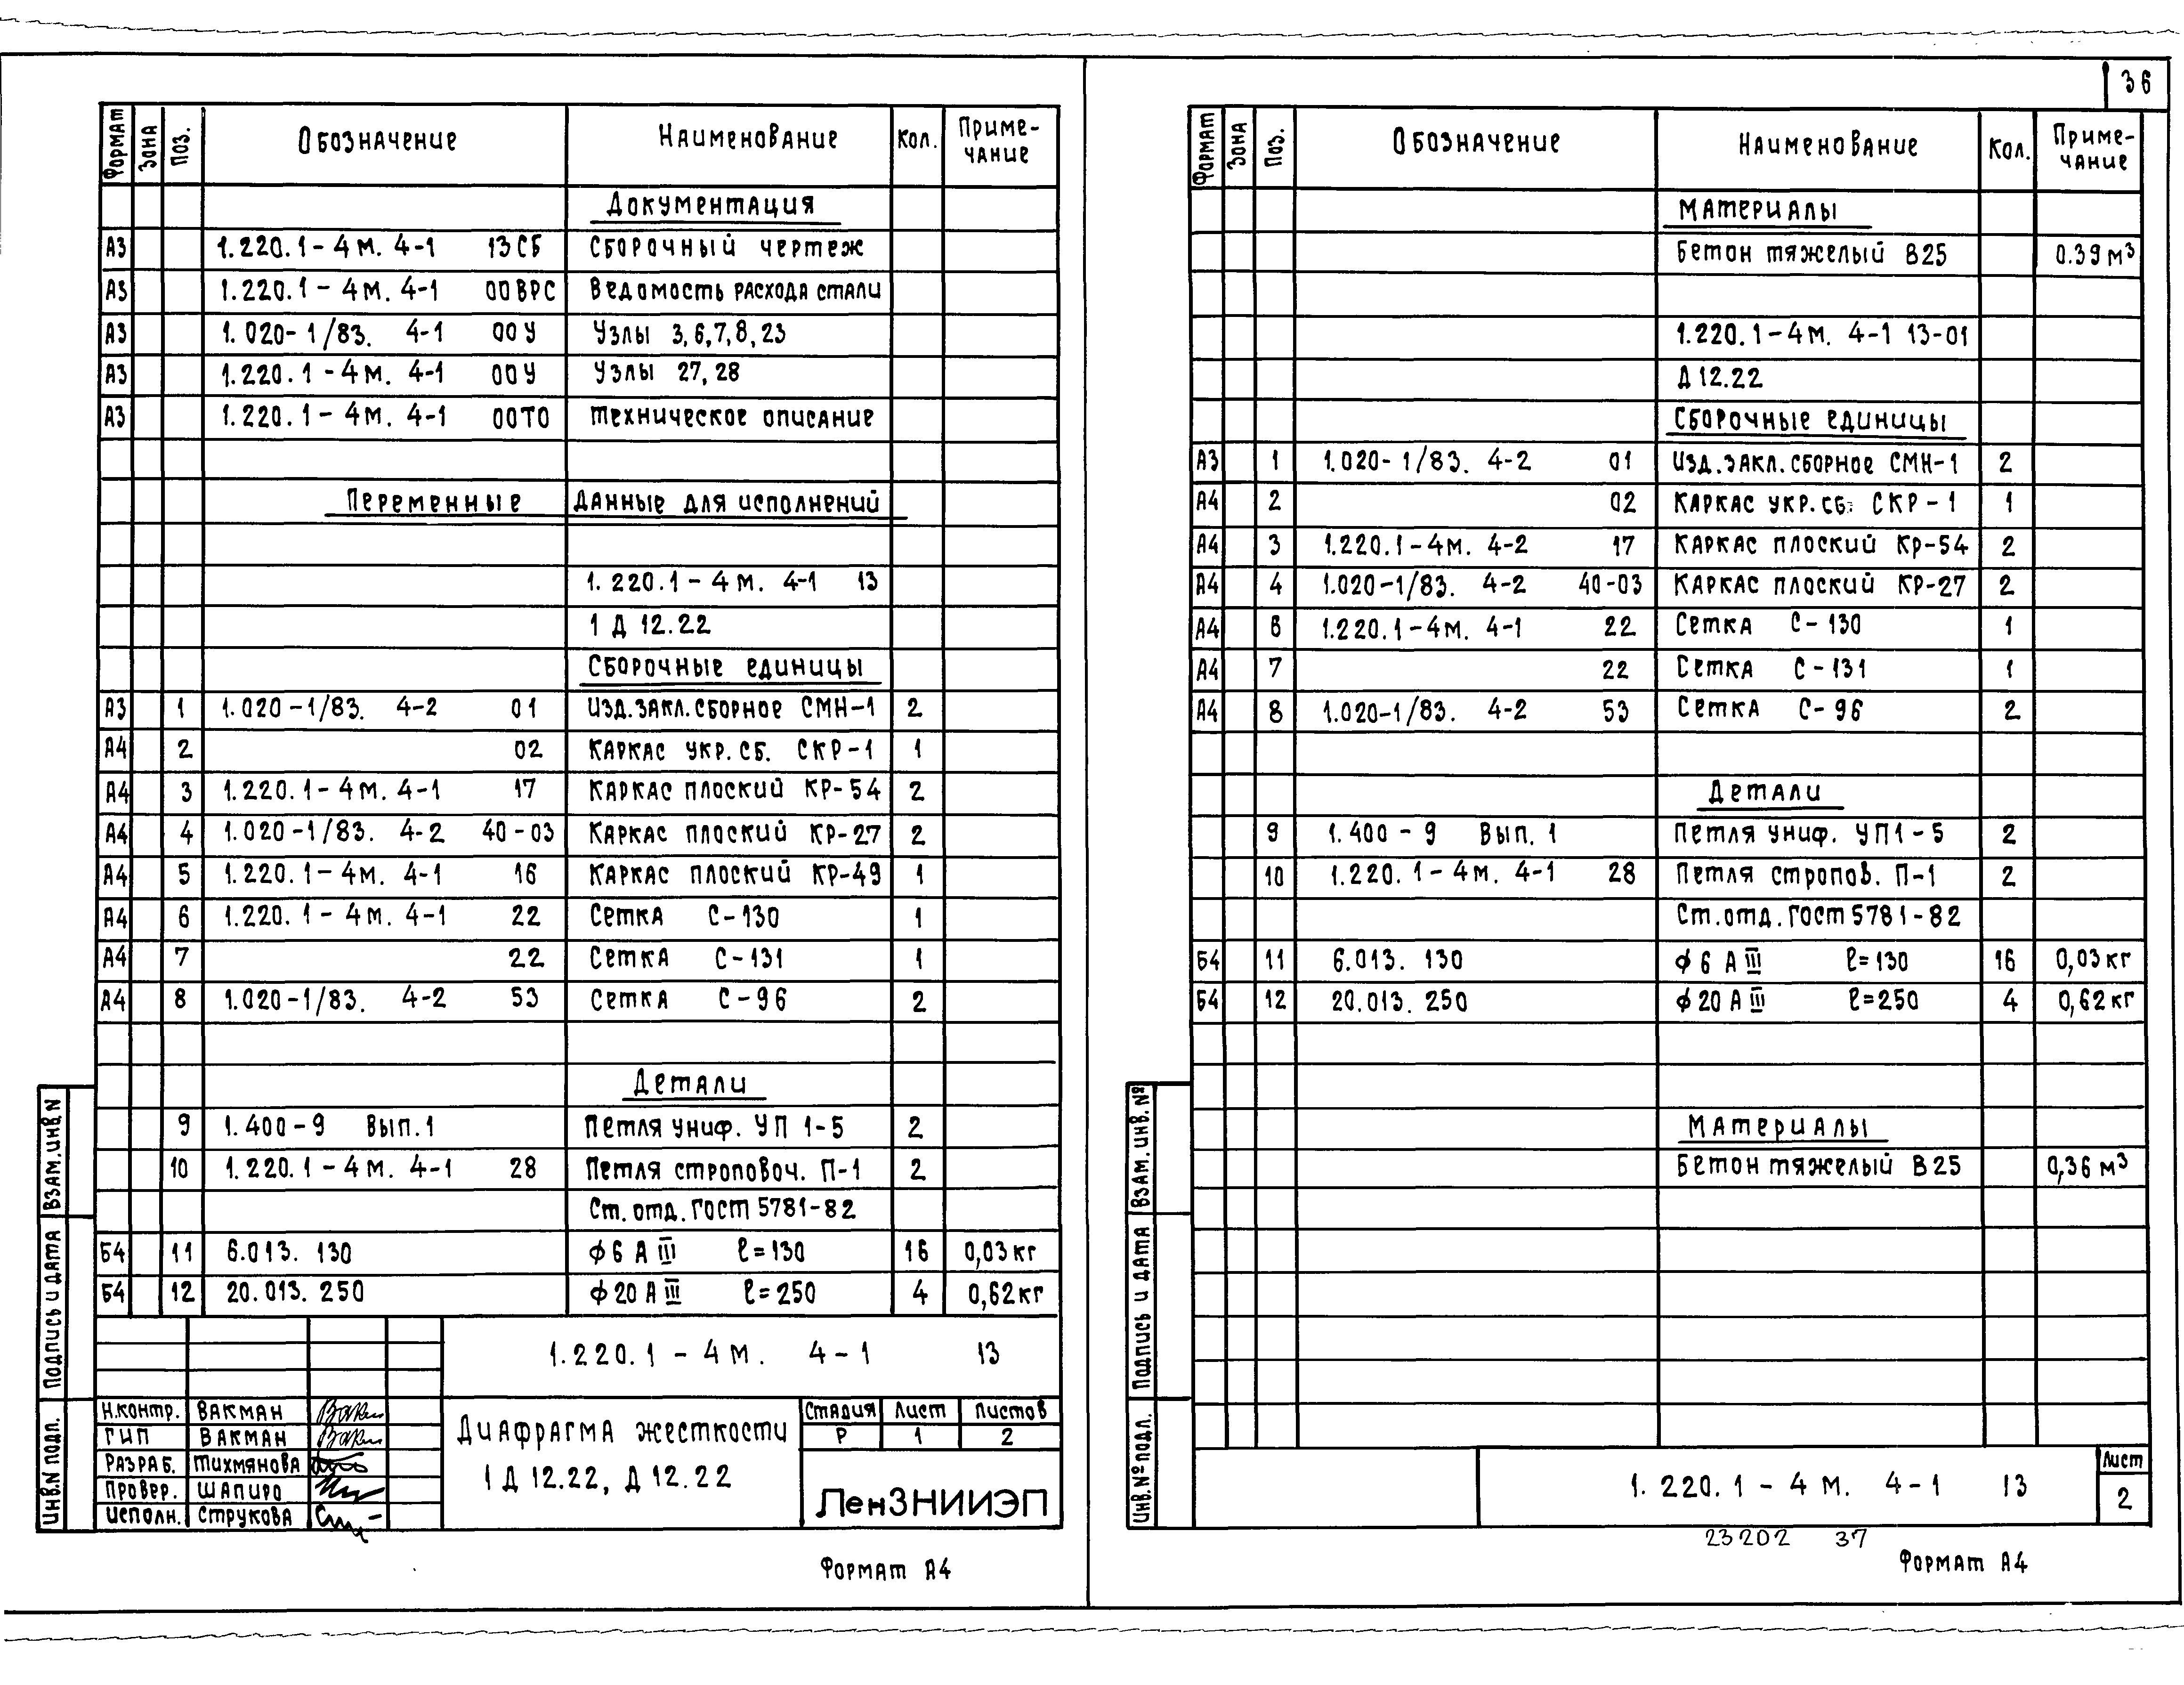 36
Формат Зона Поз. Обозначение Наименование Кол. Приме-чание
Документация
А3 1.220.1-4м. 4-1 13СБ Сборочный чертеж
А3 1.220.1-4м. 4-1 00ВРС Ведомость расхода стали
А3 1.020-1/83. 4-1 00У Узлы 3,6,7,8,23
А3 1.220.1-4м. 4-1 00У Узлы 27,28
А3 1.220.1-4м. 4-1 00ТО Техническое описание
Переменные данные для исполнений
1.220.1-4м. 4-1 13
1Д 12.22
Сборочные единицы
А3 1 1.020-1/83. 4-2 01 Изд.закл.сборное СМН-1 2
А4 2 02 Каркас укр.сб. СКР-1 1
А4 3 1.220.1-4м. 4-1 17 Каркас плоский КР-54 2
А4 4 1.020-1/83. 4-2 40-03 Каркас плоский КР-27 2
А4 5 1.220.1-4м. 4-1 16 Каркас плоский КР-49 1
А4 6 1.220.1-4м. 4-1 22 Сетка С-130 1
А4 7 22 Сетка С-131 1
А4 8 1.020-1/83. 4-2 53 Сетка С-96 2
Детали
9 1.400-9 Вып.1 Петля униф. УП 1-5 2
10 1.220.1-4м. 4-1 28 Петля строповоч. П-1 2
Ст.отд.ГОСТ 5781-82
Б4 11 6.013.130 ϕ6 А III ℓ=130 16 0,03кг
Б4 12 20.013.250 ϕ20 А III ℓ=250 4 0,62кг
1.220.1-4м. 4-1 13
Н.контр. Вакман
ГИП Вакман
Разраб. Тихмянова
Провер. Шапиро
Исполн. Струкова
Диафрагма жесткости
1Д 12.22, Д 12.22
Стадия Лист Листов
Р 1 2
ЛенЗНИИЭП
Взам.инв.N
Подпись и дата
Инв.N подл.
Формат А4
Формат Зона Поз. Обозначение Наименование Кол. Приме-чание
Материалы
Бетон тяжелый В25 0.39м³
1.220.1-4м. 4-1 13-01
Д 12.22
Сборочные единицы
А3 1 1.020-1/83. 4-2 01 Изд.закл.сборное СМН-1 2
А4 2 02 Каркас укр.сб. СКР-1 1
А4 3 1.220.1-4м. 4-2 17 Каркас плоский Кр-54 2
А4 4 1.020-1/83. 4-2 40-03 Каркас плоский КР-27 2
А4 6 1.220.1-4м. 4-1 22 Сетка С-130 1
А4 7 22 Сетка С-131 1
А4 8 1.020-1/83. 4-2 53 Сетка С-96 2
Детали
9 1.400-9 Вып.1 Петля униф. УП1-5 2
10 1.220.1-4м. 4-1 28 Петля стропов. П-1 2
Ст.отд.ГОСТ 5781-82
Б4 11 6.013.130 ϕ6 А III ℓ=130 16 0,03кг
Б4 12 20.013.250 ϕ20 А III ℓ=250 4 0,62кг
Материалы
Бетон тяжелый В25 0,36м³
1.220.1-4м. 4-1 13
Лист
2
Взам.инв.№
Подпись и дата
Инв.№подл.
23202 37
Формат А4